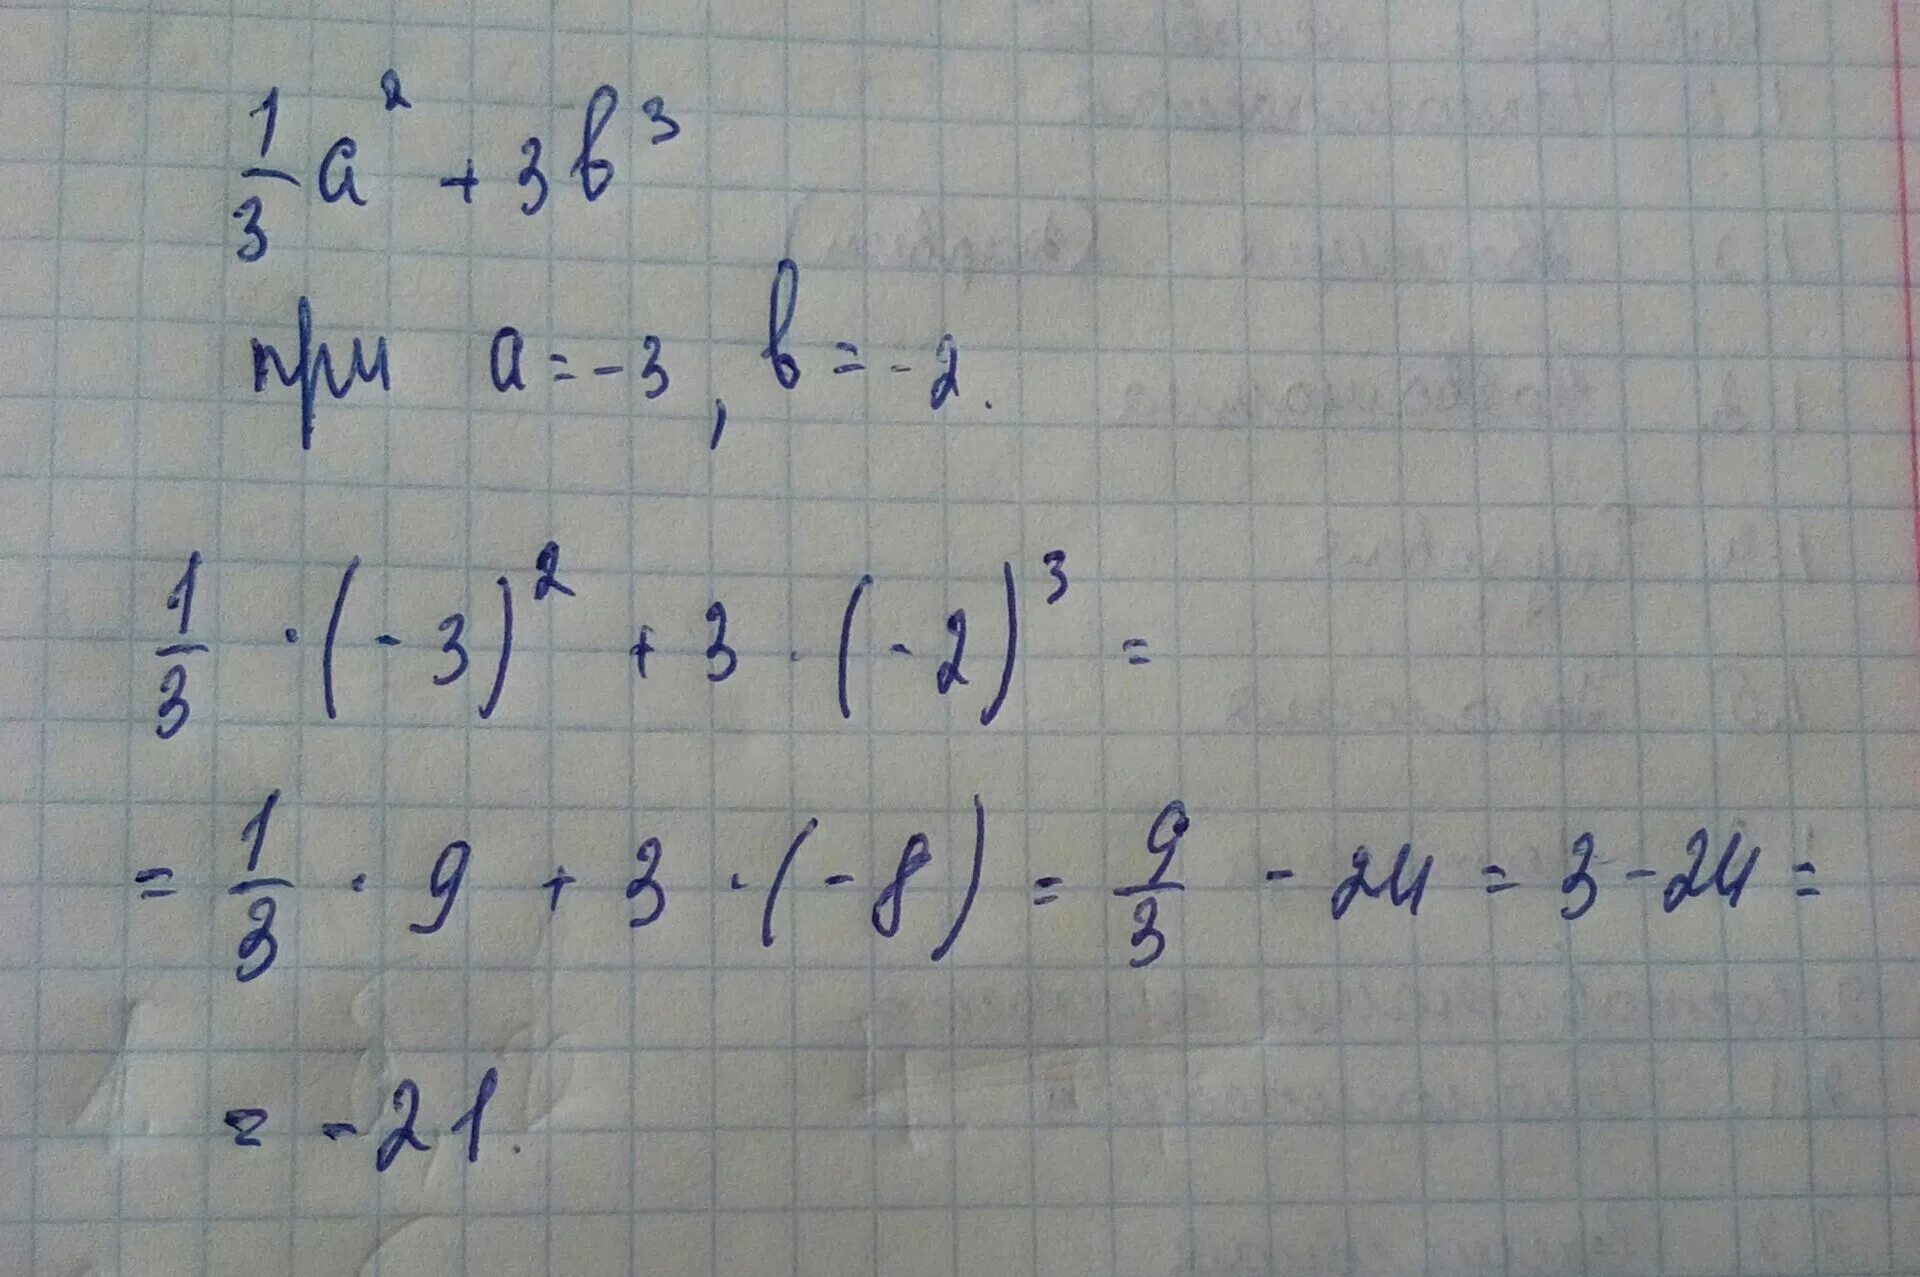 1/3 a² + 3b³
при a = -3, b = -2.
1/3 · (-3)² + 3 · (-2)³ =
= 1/3 · 9 + 3 · (-8) = 9/3 - 24 = 3 - 24 =
= -21.